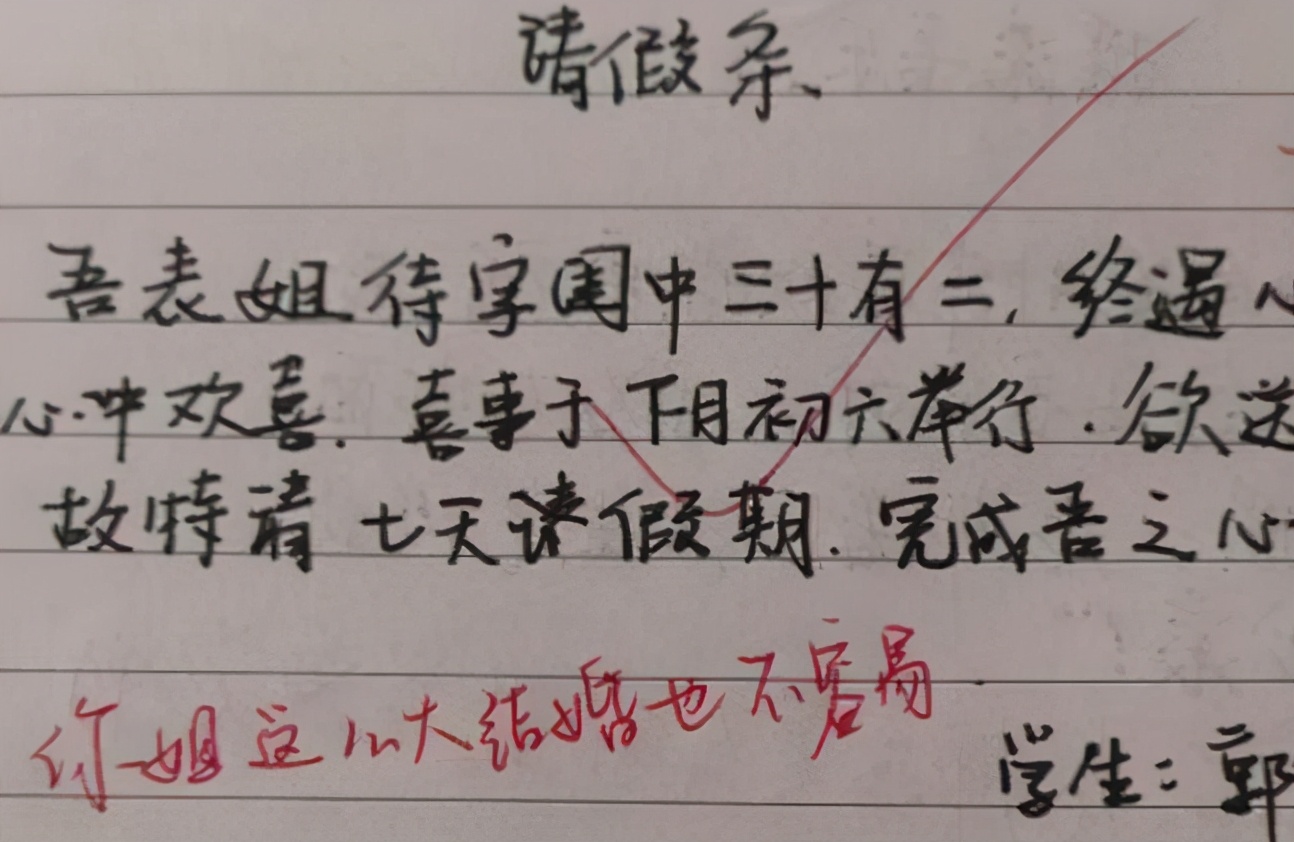 请假条
吾表姐待字闺中三十有二,终遇心
心中欢喜.喜事于下月初六举行.欲送
故特请七天请假期.完成吾之心
你姐这么大结婚也不容易
学生:郭